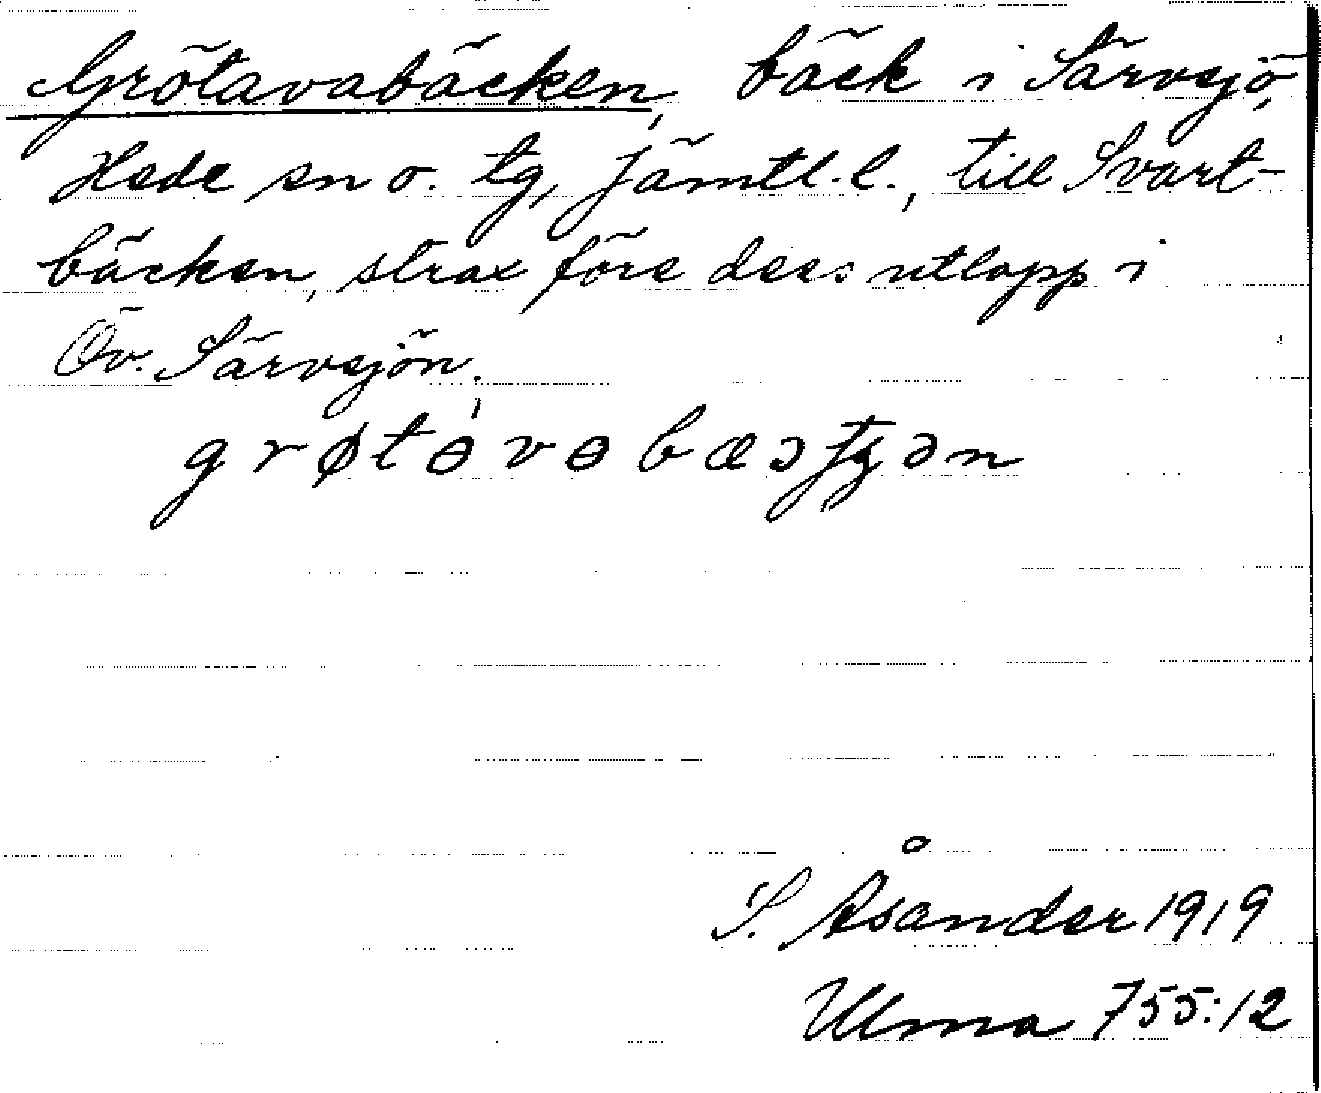 Grötavabäcken, bäck i Särvsjö,
Hede sn o. tg, Jämtl. l., till Svart-
bäcken, strax före dess utlopp i
Öv. Särvsjön.
grøtɵvɵbæ
S. Åsander 1919
Ulma 755:12